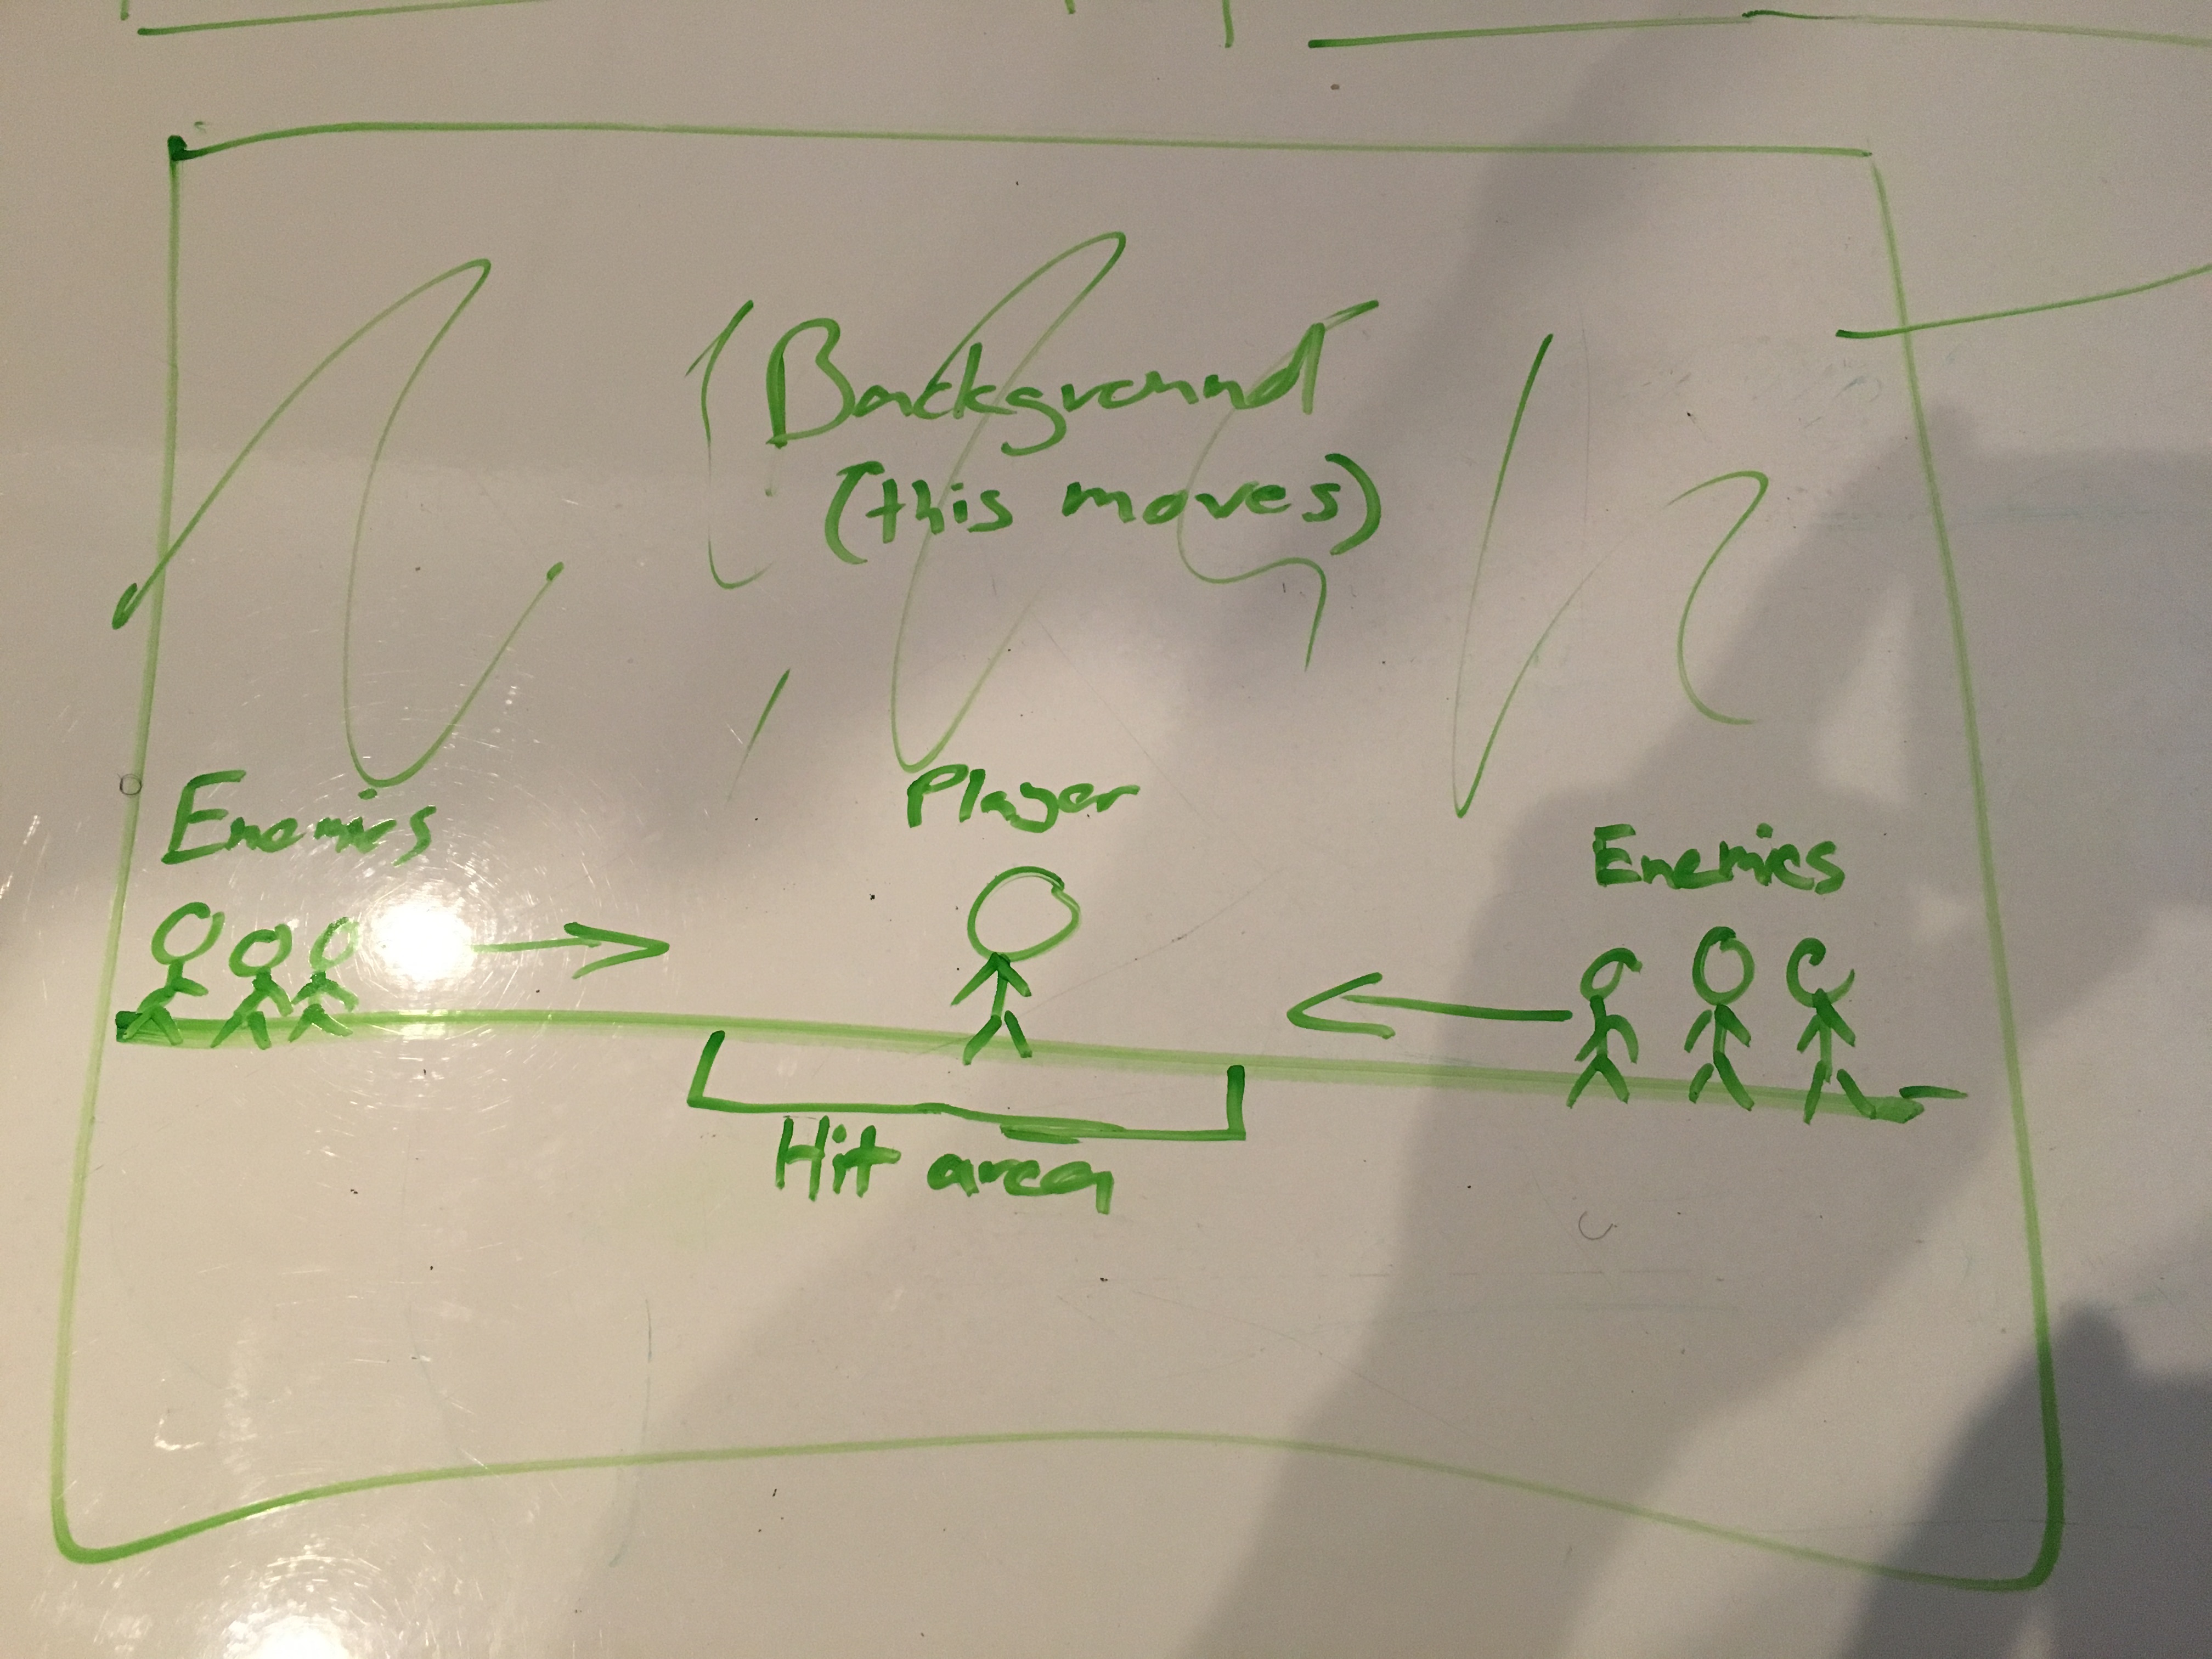 Background
(this moves)
Enemies
Player
Enemies
Hit area